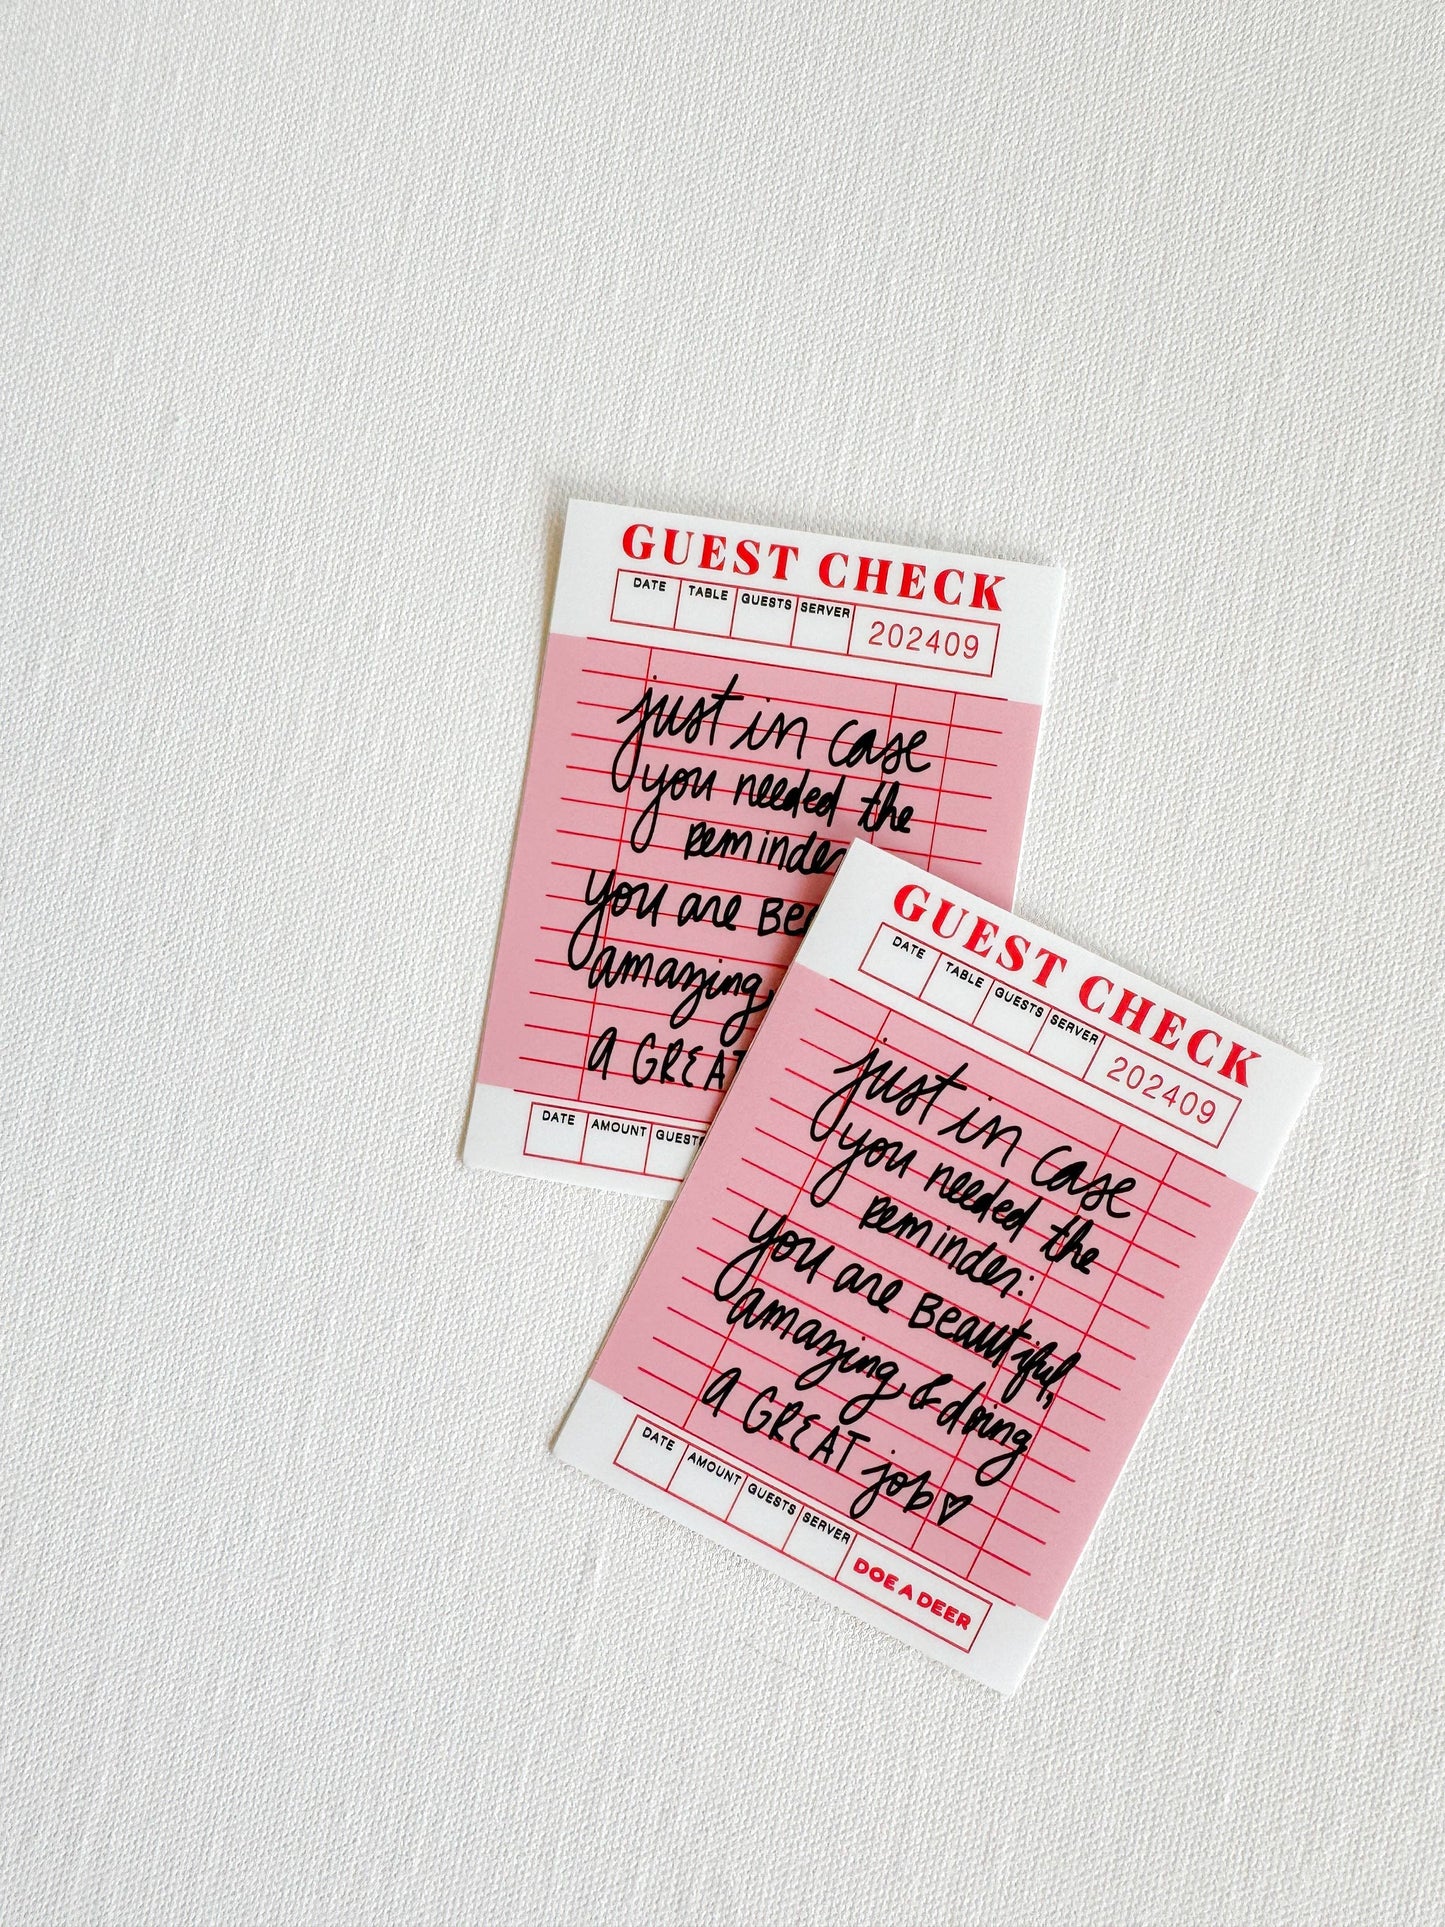 GUEST CHECK
DATE TABLE GUESTS SERVER 202409
just in case
you needed the
reminder
you are Bea
amazing,
a GREAT
DATE AMOUNT GUESTS
GUEST CHECK
DATE TABLE GUESTS SERVER 202409
just in case
you needed the
reminder:
you are Beautiful,
amazing, & doing
a GREAT job♡
DATE AMOUNT GUESTS SERVER DOE A DEER